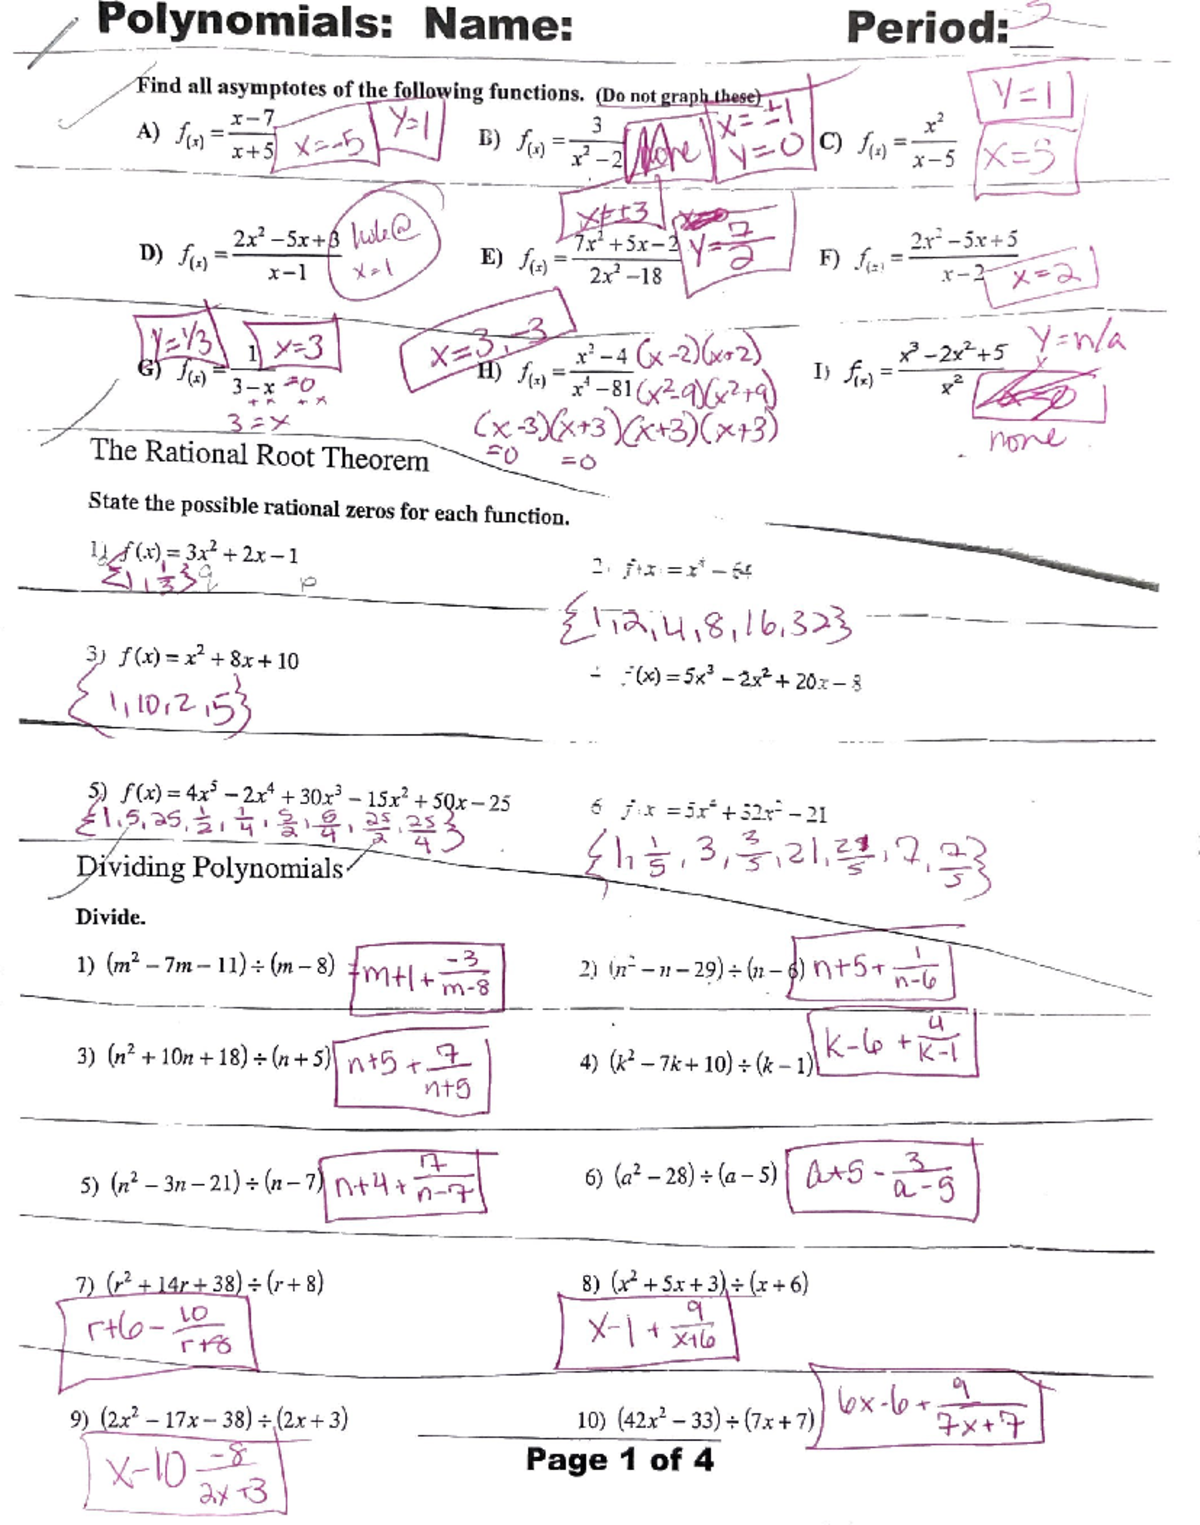 Polynomials: Name: Period: 5
Find all asymptotes of the following functions. (Do not graph these)
A) f(x) = x − 7 / x + 5 x=-5 y=1
B) f(x) = 3 / x² − 2 None x=±1 y=0
C) f(x) = x² / x − 5 y=1 x=5
D) f(x) = 2x² − 5x + 3 / x − 1 hole@ x=1
E) f(x) = 7x² + 5x − 2 / 2x² − 18 x=±3 y=7/2
F) f(x) = 2x² − 5x + 5 / x − 2 x=2
G) f(x) = 1 / 3 − x =0 y=1/3 x=3
+x +x
3=x
H) f(x) = x² − 4 / x⁴ − 81 x=3,-3 (x-2)(x+2) (x²-9)(x²+9)
(x-3)(x+3)(x+3)(x+3)
=0 =0
I) f(x) = x³ − 2x² + 5 / x² y=n/a
none
The Rational Root Theorem
State the possible rational zeros for each function.
1) f(x) = 3x² + 2x − 1
{1, 1/3} q p
2. f(x) = x⁴ − 64
{1,2,4,8,16,32}
3) f(x) = x² + 8x + 10
{1,10,2,5}
f(x) = 5x³ − 2x² + 20x − 8
5) f(x) = 4x⁵ − 2x⁴ + 30x³ − 15x² + 50x − 25
{1,5,25, 1/2, 1/4, 5/2, 5/4, 25/2, 25/4}
6 f x = 5x⁴ + 32x² − 21
{1, 1/5, 3, 3/5, 21, 21/5, 7, 7/5}
Dividing Polynomials
Divide.
1) (m² − 7m − 11) ÷ (m − 8) =m+1+ -3/m-8
2) (n² − n − 29) ÷ (n − 6) n+5+ 1/n-6
3) (n² + 10n + 18) ÷ (n + 5) n+5+ 7/n+5
4) (k² − 7k + 10) ÷ (k − 1) k-6 + 4/k-1
5) (n² − 3n − 21) ÷ (n − 7) n+4+ 7/n-7
6) (a² − 28) ÷ (a − 5) a+5 - 3/a-5
7) (r² + 14r + 38) ÷ (r + 8)
r+6 - 10/r+8
8) (x² + 5x + 3) ÷ (x + 6)
x-1 + 9/x+6
9) (2x² − 17x − 38) ÷ (2x + 3)
x-10 -8/2x+3
10) (42x² − 33) ÷ (7x + 7) 6x-6+ 9/7x+7
Page 1 of 4